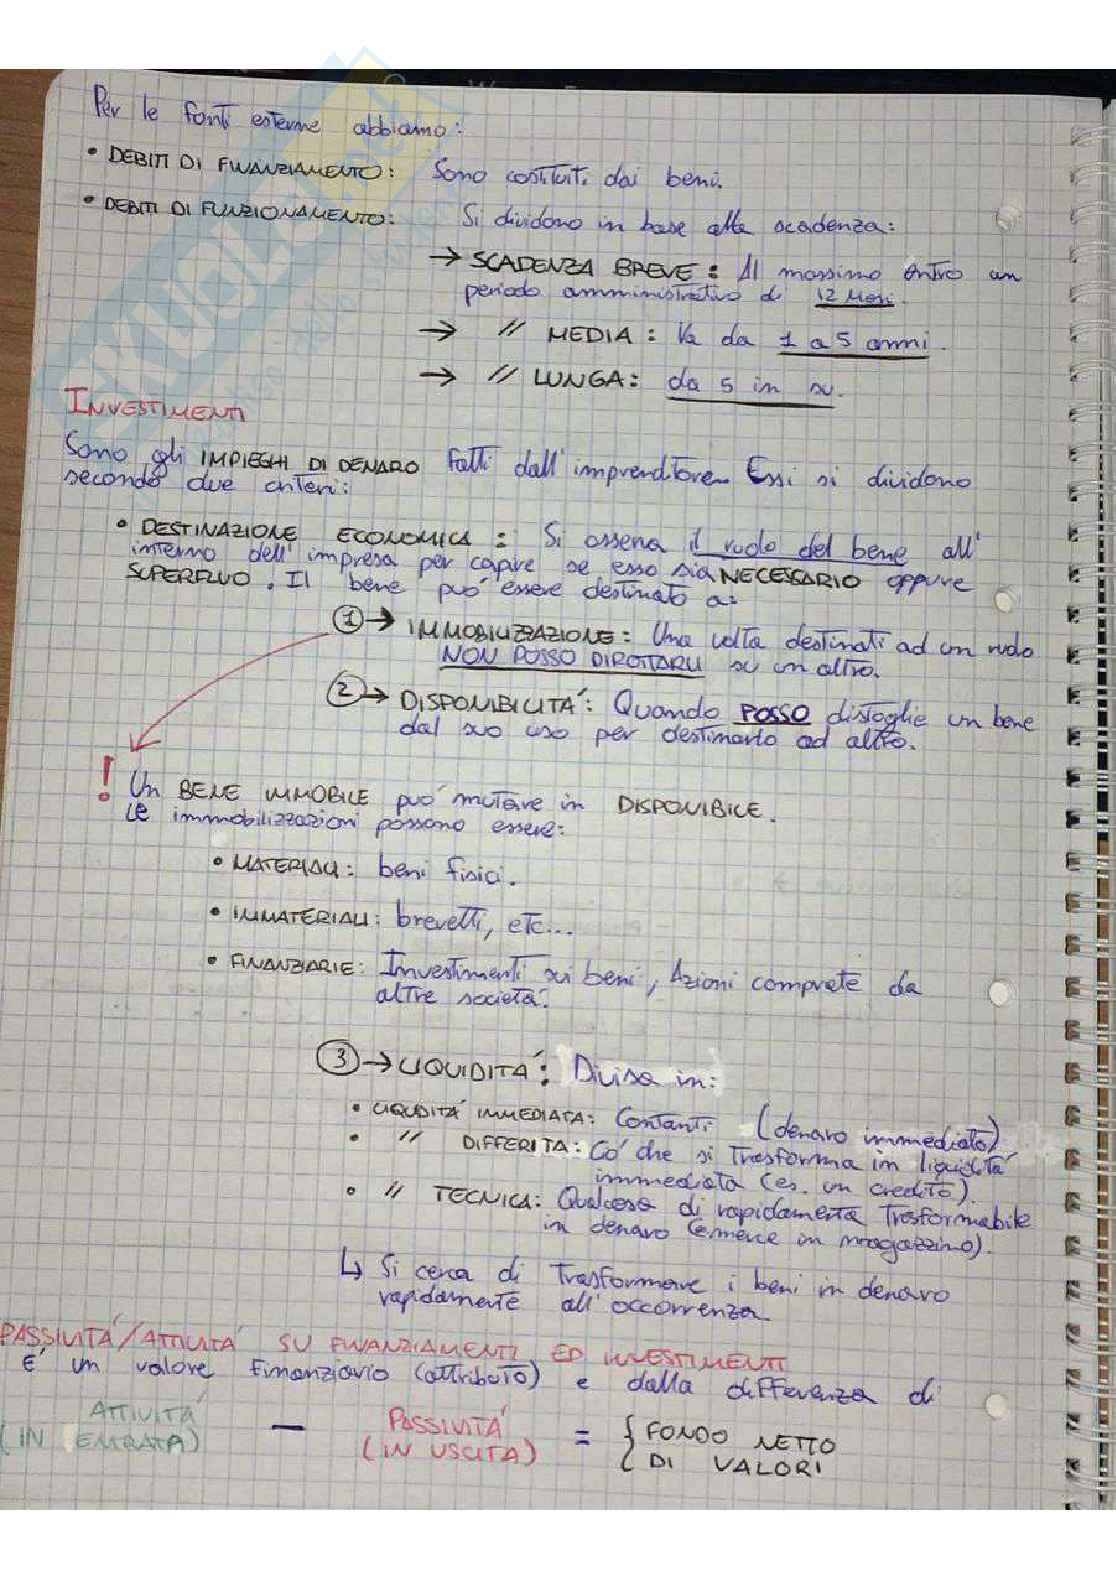 Per le fonti esterne abbiamo:
• DEBITI DI FINANZIAMENTO: Sono costituiti dai beni.
• DEBITI DI FUNZIONAMENTO: Si dividono in base alla scadenza:
→ SCADENZA BREVE: Al massimo entro un
periodo amministrativo di 12 mesi.
→ // MEDIA: Va da 1 a 5 anni.
→ // LUNGA: da 5 in su.
INVESTIMENTI
Sono gli IMPIEGHI DI DENARO fatti dall'imprenditore. Essi si dividono
secondo due criteri:
• DESTINAZIONE ECONOMICA: Si osserva il ruolo del bene all'
interno dell'impresa per capire se esso sia NECESSARIO oppure
SUPERFLUO. Il bene può essere destinato a:
1 → IMMOBILIZZAZIONE: Una volta destinati ad un ruolo
NON POSSO DIROTTARLI su un altro.
2 → DISPONIBILITÀ: Quando POSSO distoglie un bene
dal suo uso per destinarlo ad altro.
! Un BENE IMMOBILE può mutare in DISPONIBILE.
Le immobilizzazioni possono essere:
• MATERIALI: beni fisici.
• IMMATERIALI: brevetti, etc...
• FINANZIARIE: Investimenti sui beni, Azioni comprate da
altre società.
3 → LIQUIDITÀ: Divisa in:
• LIQUIDITÀ IMMEDIATA: Contanti (denaro immediato)
• // DIFFERITA: Ciò che si trasforma in liquidità
immediata (es. un credito).
• // TECNICA: Qualcosa di rapidamente trasformabile
in denaro (merce in magazzino).
↳ Si cerca di trasformare i beni in denaro
rapidamente all'occorrenza.
PASSIVITÀ/ATTIVITÀ SU FINANZIAMENTI ED INVESTIMENTI
È un valore finanziario (attributo) e dalla differenza di
ATTIVITÀ (IN ENTRATA) − PASSIVITÀ (IN USCITA) = { FONDO NETTO
DI VALORI